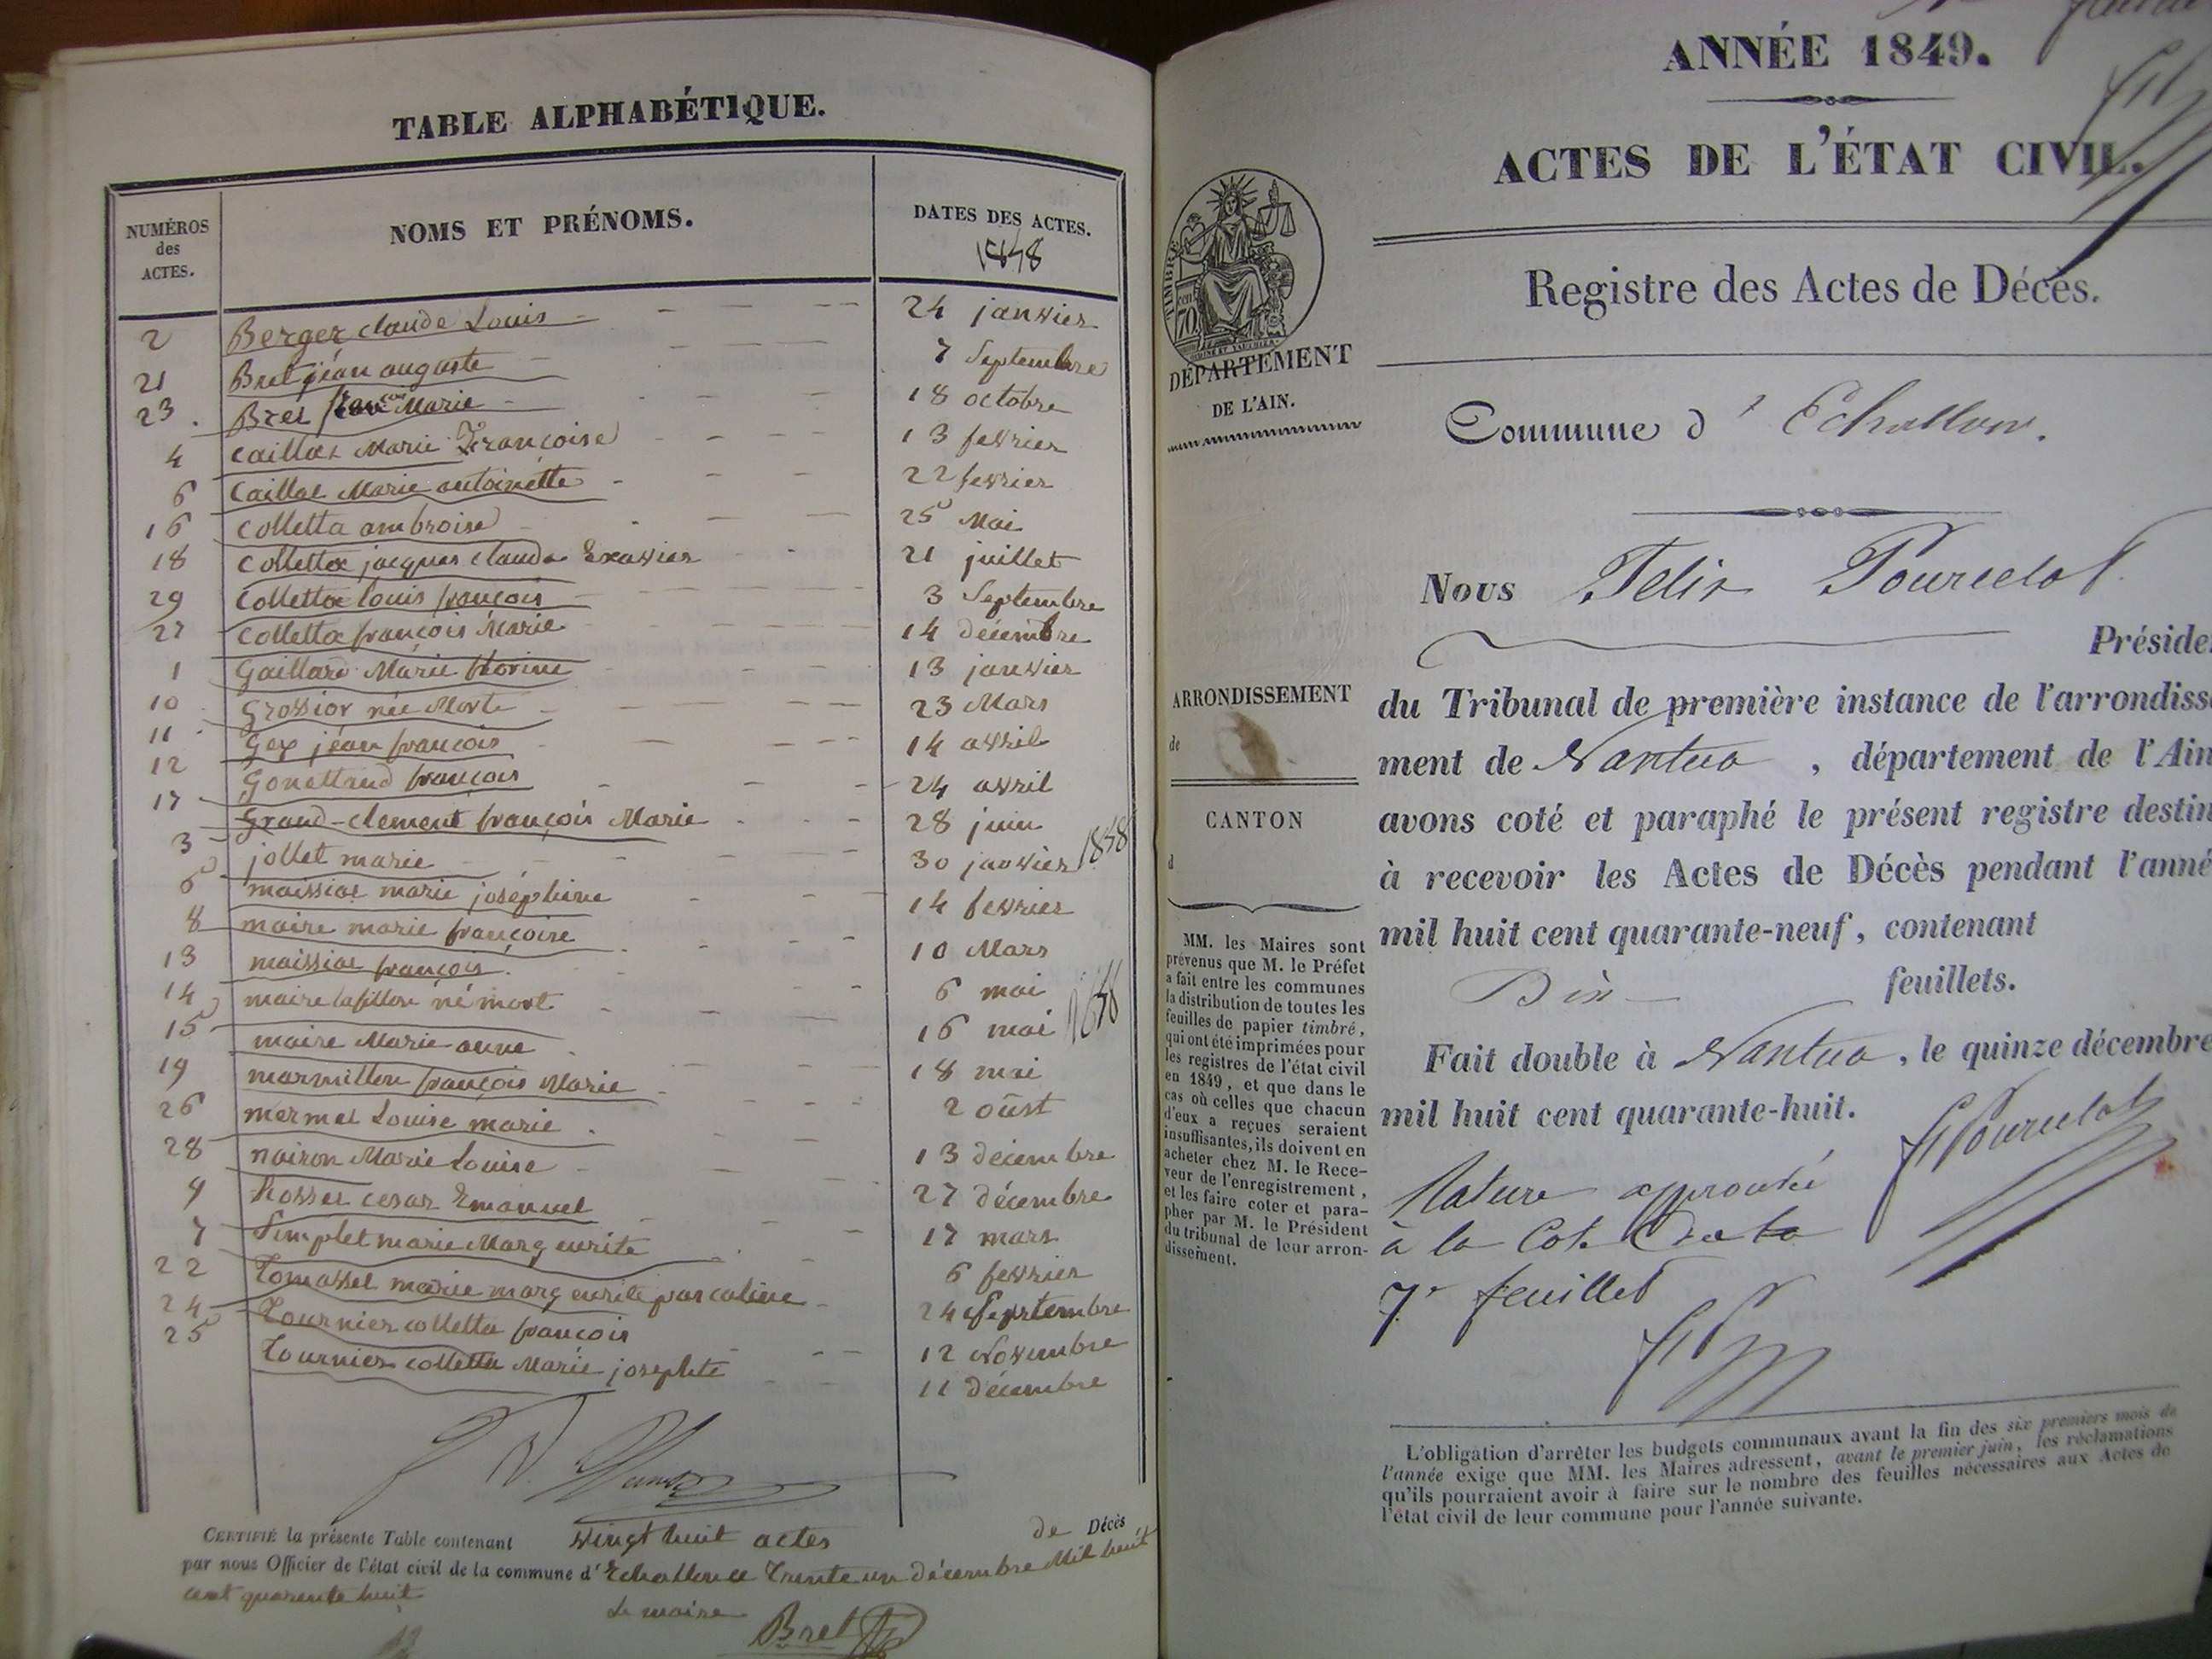 TABLE ALPHABÉTIQUE.
NUMÉROS
des
ACTES.
NOMS ET PRÉNOMS.
DATES DES ACTES.
1848
2 Berger claude Louis 24 janvier
21 Bret jéan auguste 7 Septembre
23 Bret Marie 18 octobre
4 caillat Marie Françoise 13 fevrier
6 Caillat Marie antoinette 22 fevrier
16 colletta ambroise 25 Mai
18 colletta jacques claude Exavier 21 juillet
29 Colletta louis françois 3 Septembre
27 colletta françois Marie 14 décembre
1 Gaillard Marie florine 13 janvier
10 Grossior née Morte 23 Mars
11 Gex jéan françois 14 avril
12 Gonettrand françois 24 avril
17 Grand-clement françois Marie 28 juin
3 jollet marie 30 janvier 1848
5 maissiat marie joséphine 14 fevrier
8 maire marie françoise 10 Mars
13 maissiat françois 6 mai
14 maire lafillon né mort 16 mai
15 maire Marie anne 18 mai
19 marmillon françois Marie 2 oûst
26 mermet Louise marie 13 décembre
28 nairon Marie Louise 27 décembre
9 Rosset cesar Emanuel 17 mars
7 Simplet marie Marguerite 6 fevrier
22 Tomasset marie marguerite pascaline 24 Septembre
24 Tournier colletta françois 12 Novembre
25 Tournier colletta Marie josephte 11 décembre
CERTIFIÉ la présente Table contenant vingt huit actes de Décès
par nous Officier de l'état civil de la commune d'Echallon ce Trente un décembre Mil huit
cent quarente huit
Le maire
Bret
ANNÉE 1849.
ACTES DE L'ÉTAT CIVIL.
Registre des Actes de Décès.
TIMBRE
70
DÉPARTEMENT
DE L'AIN.
Commune d' Echallon.
Nous Felix Pourcelot
Préside
du Tribunal de première instance de l'arrondisse
ARRONDISSEMENT
de
ment de Nantua, département de l'Ain
avons coté et paraphé le présent registre destin
à recevoir les Actes de Décès pendant l'anné
mil huit cent quarante-neuf, contenant
Dix feuillets.
Fait double à Nantua, le quinze décembre
mil huit cent quarante-huit.
CANTON
d
MM. les Maires sont
prévenus que M. le Préfet
a fait entre les communes
la distribution de toutes les
feuilles de papier timbré,
qui ont été imprimées pour
les registres de l'état civil
en 1849, et que dans le
cas où celles que chacun
d'eux a reçues seraient
insuffisantes, ils doivent en
acheter chez M. le Rece-
veur de l'enregistrement,
et les faire coter et para-
pher par M. le Président
du tribunal de leur arron-
dissement.
Pourcelot
Rature approuvé
à la Cote
7e feuillet
L'obligation d'arrêter les budgets communaux avant la fin des six premiers mois de
l'année exige que MM. les Maires adressent, avant le premier juin, les réclamations
qu'ils pourraient avoir à faire sur le nombre des feuilles nécessaires aux Actes de
l'état civil de leur commune pour l'année suivante.